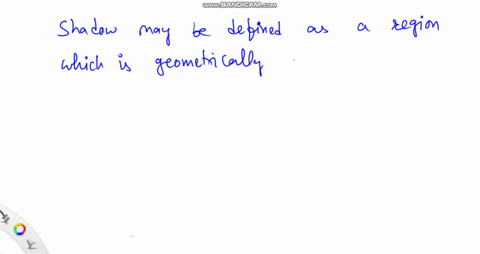 www.BANDICAM.com
Shadow may be defined as a region
which is geometrically